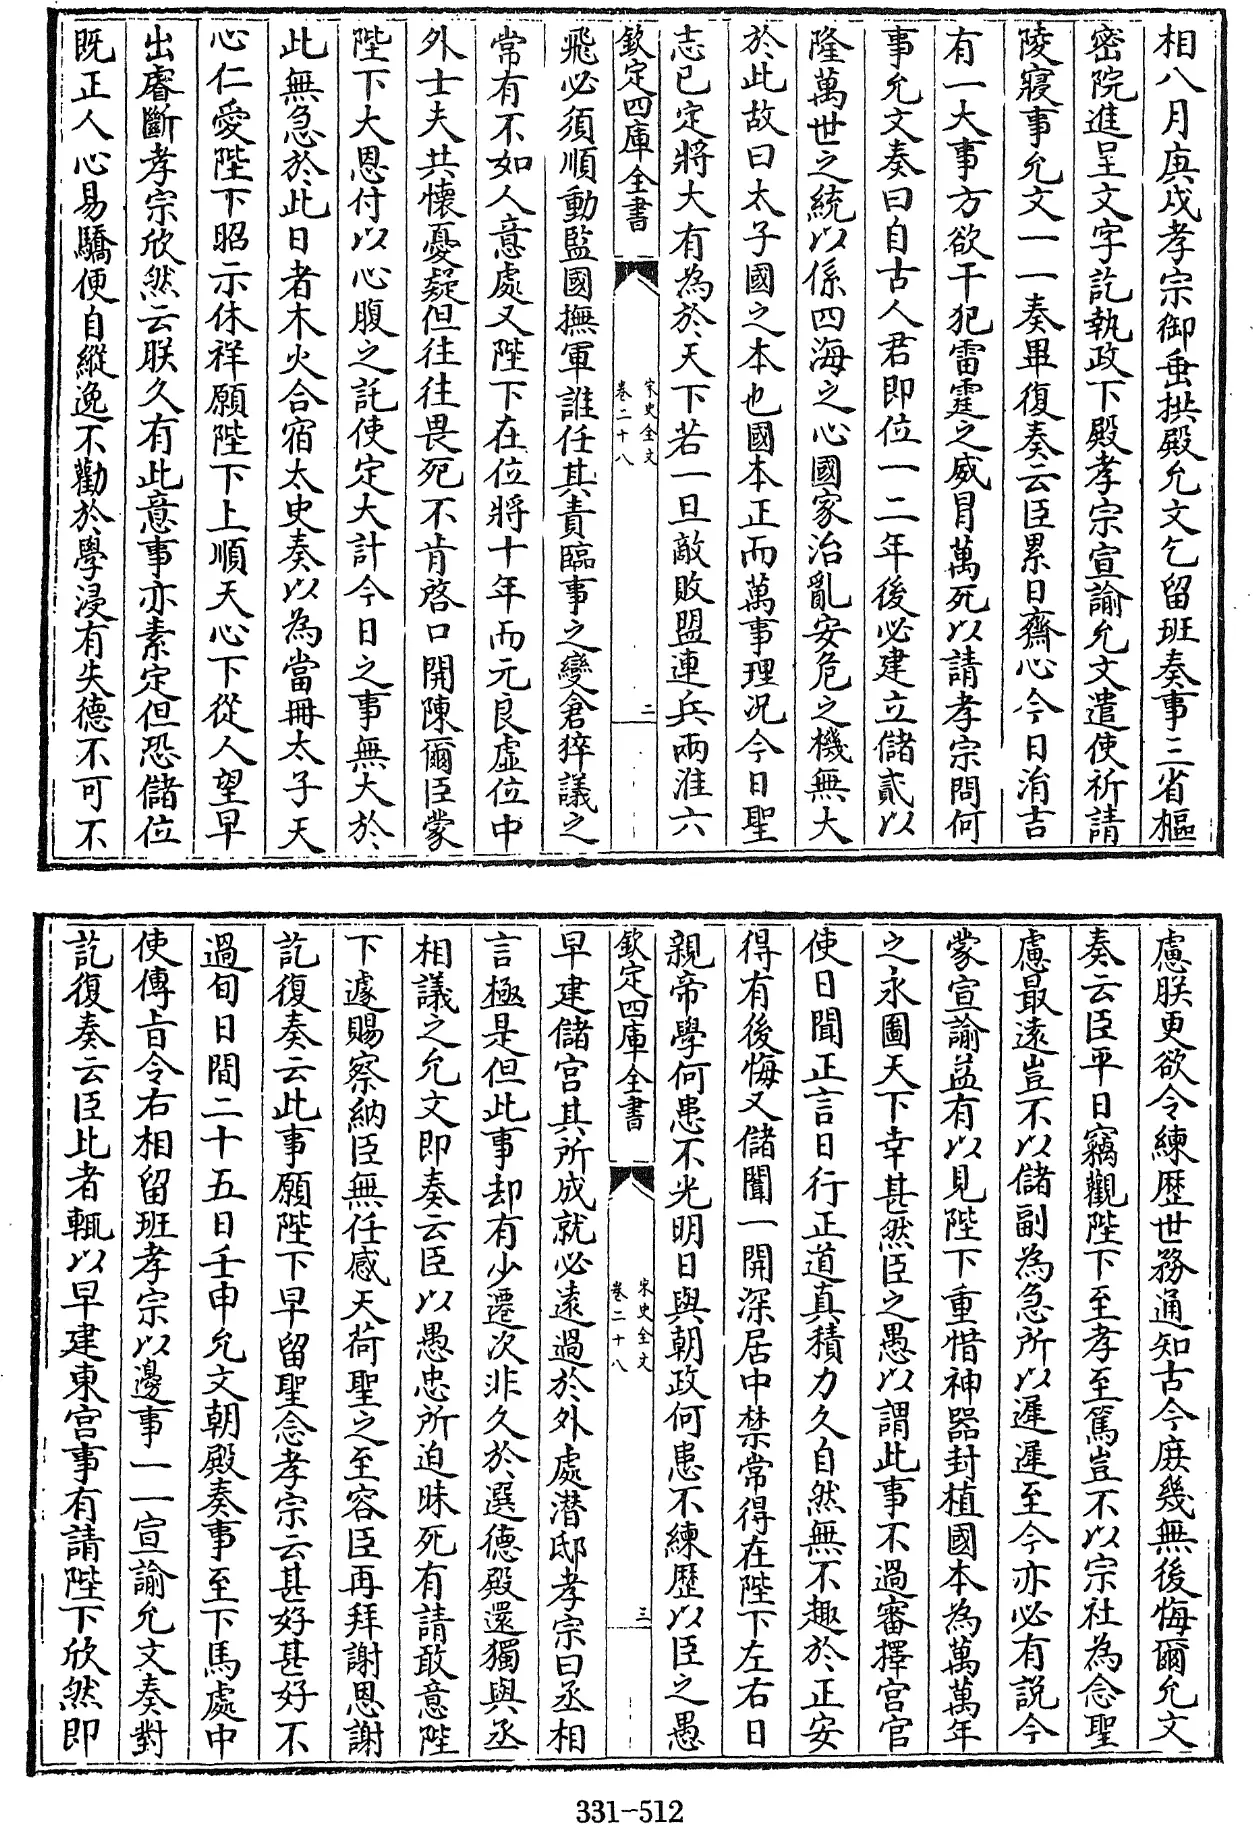 相八月庚戌孝宗御垂拱殿允文乞留班奏事三省樞
密院進呈文字訖執政下殿孝宗宣諭允文遣使祈請
陵寢事允文一一奏畢復奏云臣累日齋心今日涓吉
有一大事方欲干犯雷霆之威冒萬死以請孝宗問何
事允文奏曰自古人君即位一二年後必建立儲貳以
隆萬世之統以係四海之心國家治亂安危之機無大
於此故曰太子國之本也國本正而萬事理況今日聖
志已定將大有為於天下若一旦敵敗盟連兵兩淮六
欽定四庫全書
宋史全文
卷二十八
二
飛必須順動監國撫軍誰任其責臨事之變倉猝議之
常有不如人意處又陛下在位將十年而元良虛位中
外士夫共懷憂疑但往往畏死不肯啓口開陳爾臣蒙
陛下大恩付以心腹之託使定大計今日之事無大於
此無急於此日者木火合宿太史奏以為當冊太子天
心仁愛陛下昭示休祥願陛下上順天心下從人望早
出睿斷孝宗欣然云朕久有此意事亦素定但恐儲位
既正人心易驕便自縱逸不勸於學浸有失德不可不
慮朕更欲令練歷世務通知古今庶幾無後悔爾允文
奏云臣平日竊觀陛下至孝至篤豈不以宗社為念聖
慮最遠豈不以儲副為急所以遲遲至今亦必有説今
蒙宣諭益有以見陛下重惜神器封植國本為萬萬年
之永圖天下幸甚然臣之愚以謂此事不過審擇宮官
使日聞正言日行正道真積力久自然無不趣於正安
得有後悔又儲闈一開深居中禁常得在陛下左右日
親帝學何患不光明日與朝政何患不練歷以臣之愚
欽定四庫全書
宋史全文
卷二十八
三
早建儲宮其所成就必遠過於外處潛邸孝宗曰丞相
言極是但此事却有少遷次非久於選德殿還獨與丞
相議之允文即奏云臣以愚忠所迫昧死有請敢意陛
下遽賜察納臣無任感天荷聖之至容臣再拜謝恩謝
訖復奏云此事願陛下早留聖念孝宗云甚好甚好不
過旬日間二十五日壬申允文朝殿奏事至下馬處中
使傳旨令右相留班孝宗以邊事一一宣諭允文奏對
訖復奏云臣比者輒以早建東宮事有請陛下欣然即
331-512